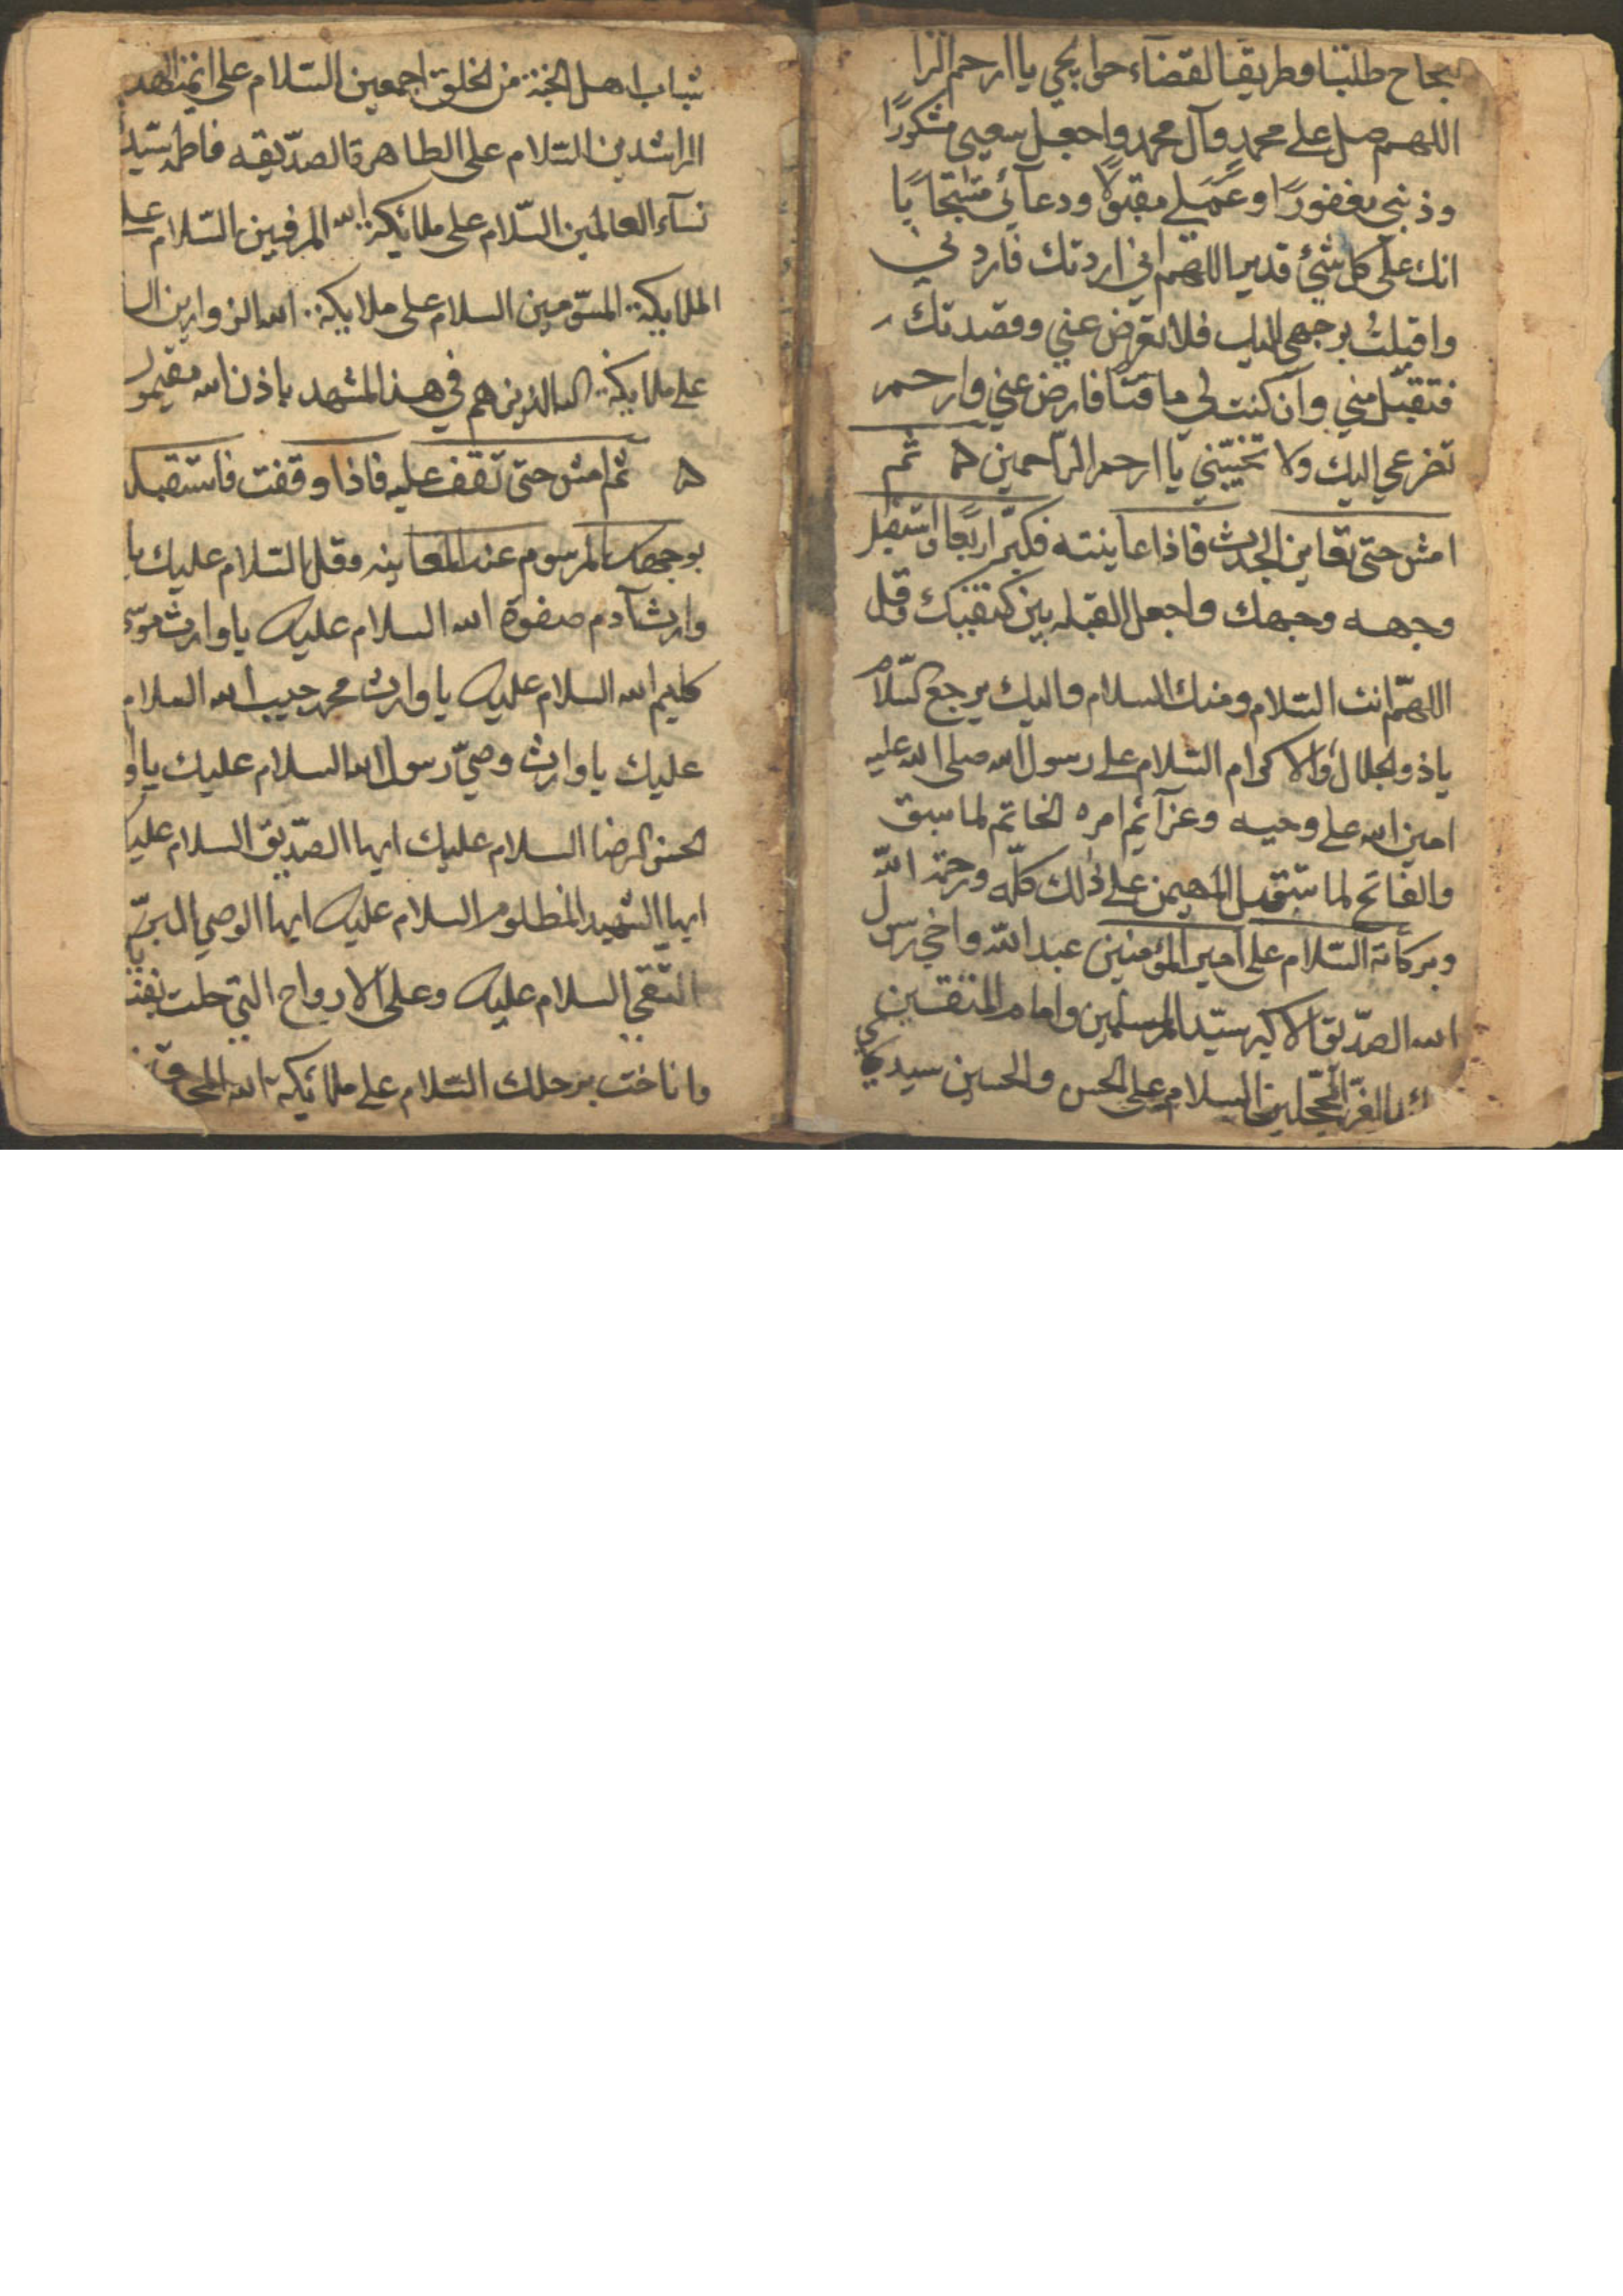 بنجاح طلبتنا وطريقا لقضآء حوايجي يا ارحم الرا
اللهم صل على محمد وآل محمد واجعل سعيي مشكورًا
وذنبي مغفورًا وعملي مقبولًا ودعآئي مستجابًا
انك على كل شئ قدير اللهم اني اردتك فاردني
واقبلت بوجهي اليك فلا تعرض عني وقصدتك
فتقبل مني وان كنت لي ماقتًا فارض عني وارحم
تضرعي اليك ولا تخيبني يا ارحم الراحمين ثم
امش حتى تعاين الجدث فاذا عاينته فكبر اربعًا واستقبل
وجهه وجهك واجعل القبله بين كتفيك وقل
اللهم انت السلام ومنك السلام واليك يرجع السلام
ياذو الجلال والاكرام السلام على رسول الله صلى الله عليه
امين الله على وحيه وعزآئم امره الخاتم لما سبق
والفاتح لما ستقبل المهيمن على ذلك كله ورحمة الله
وبركاته السلام على امير المؤمنين عبد الله واخي رسول
الله الصديق الاكبر سيد المرسلمين وامام المتقين
الغر المحجلين السلام على الحسن والحسين سيدي
شباب اهل الجنة من الخلق اجمعين السلام على ائمة الهد
الراشدين السلام على الطاهرة الصديقه فاطمه سيدة
نسآء العالمين السلام على ملائكة الله المرفين السلام على
الملايكة المسومين السلام على ملايكة الله الزوارين ال
على ملايكة الله الذين هم في هذا المشهد باذن الله مقيمون
ثم امش حتى تقف عليه فاذا وقفت فاستقبله
بوجهك المرسوم عند المعاينه وقل السلام عليك يا
وارث آدم صفوة الله السلام عليك يا وارث موسى
كليم الله السلام عليك يا وارث محمد حبيب الله السلام
عليك يا وارث وصي رسول الله السلام عليك يا وا
الحسن الرضا السلام عليك ايها الصديق السلام عليك
ايها الشهيد المظلوم السلام عليك ايها الوصي البر
التقي السلام عليك وعلى الارواح التي حلت بفنا
واناخت برحلك السلام على ملائكة الله المحد‍قين